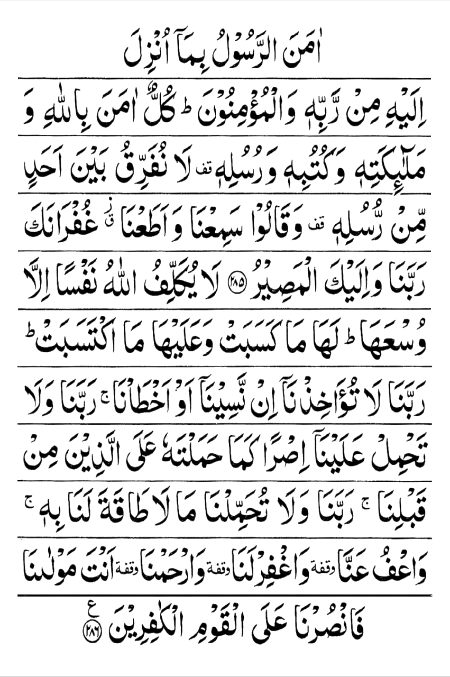 اٰمَنَ الرَّسُوۡلُ بِمَاۤ اُنۡزِلَ
اِلَيۡهِ مِنۡ رَّبِّهٖ وَالۡمُؤۡمِنُوۡنَ ؕ كُلٌّ اٰمَنَ بِاللّٰهِ وَ
مَلٰٓئِكَتِهٖ وَكُتُبِهٖ وَرُسُلِهٖ قف لَا نُفَرِّقُ بَيۡنَ اَحَدٍ
مِّنۡ رُّسُلِهٖ قف وَقَالُوۡا سَمِعۡنَا وَاَطَعۡنَا ق ز غُفۡرَانَكَ
رَبَّنَا وَاِلَيۡكَ الۡمَصِيۡرُ ﴿۲۸۵﴾ لَا يُكَلِّفُ اللّٰهُ نَفۡسًا اِلَّا
وُسۡعَهَا ؕ لَهَا مَا كَسَبَتۡ وَعَلَيۡهَا مَا اكۡتَسَبَتۡ ؕ
رَبَّنَا لَا تُؤَاخِذۡنَاۤ اِنۡ نَّسِيۡنَاۤ اَوۡ اَخۡطَاۡنَا ۚ رَبَّنَا وَلَا
تَحۡمِلۡ عَلَيۡنَاۤ اِصۡرًا كَمَا حَمَلۡتَهٗ عَلَى الَّذِيۡنَ مِنۡ
قَبۡلِنَا ۚ رَبَّنَا وَلَا تُحَمِّلۡنَا مَا لَا طَاقَةَ لَنَا بِهٖ ۚ
وَاعۡفُ عَنَّا وقفة وَاغۡفِرۡ لَنَا وقفة وَارۡحَمۡنَا وقفة اَنۡتَ مَوۡلٰٮنَا
فَانۡصُرۡنَا عَلَى الۡقَوۡمِ الۡكٰفِرِيۡنَ ﴿۲۸۶﴾ ع